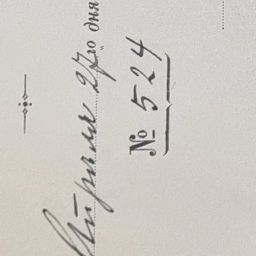 Апреля 27го дня
№ 524